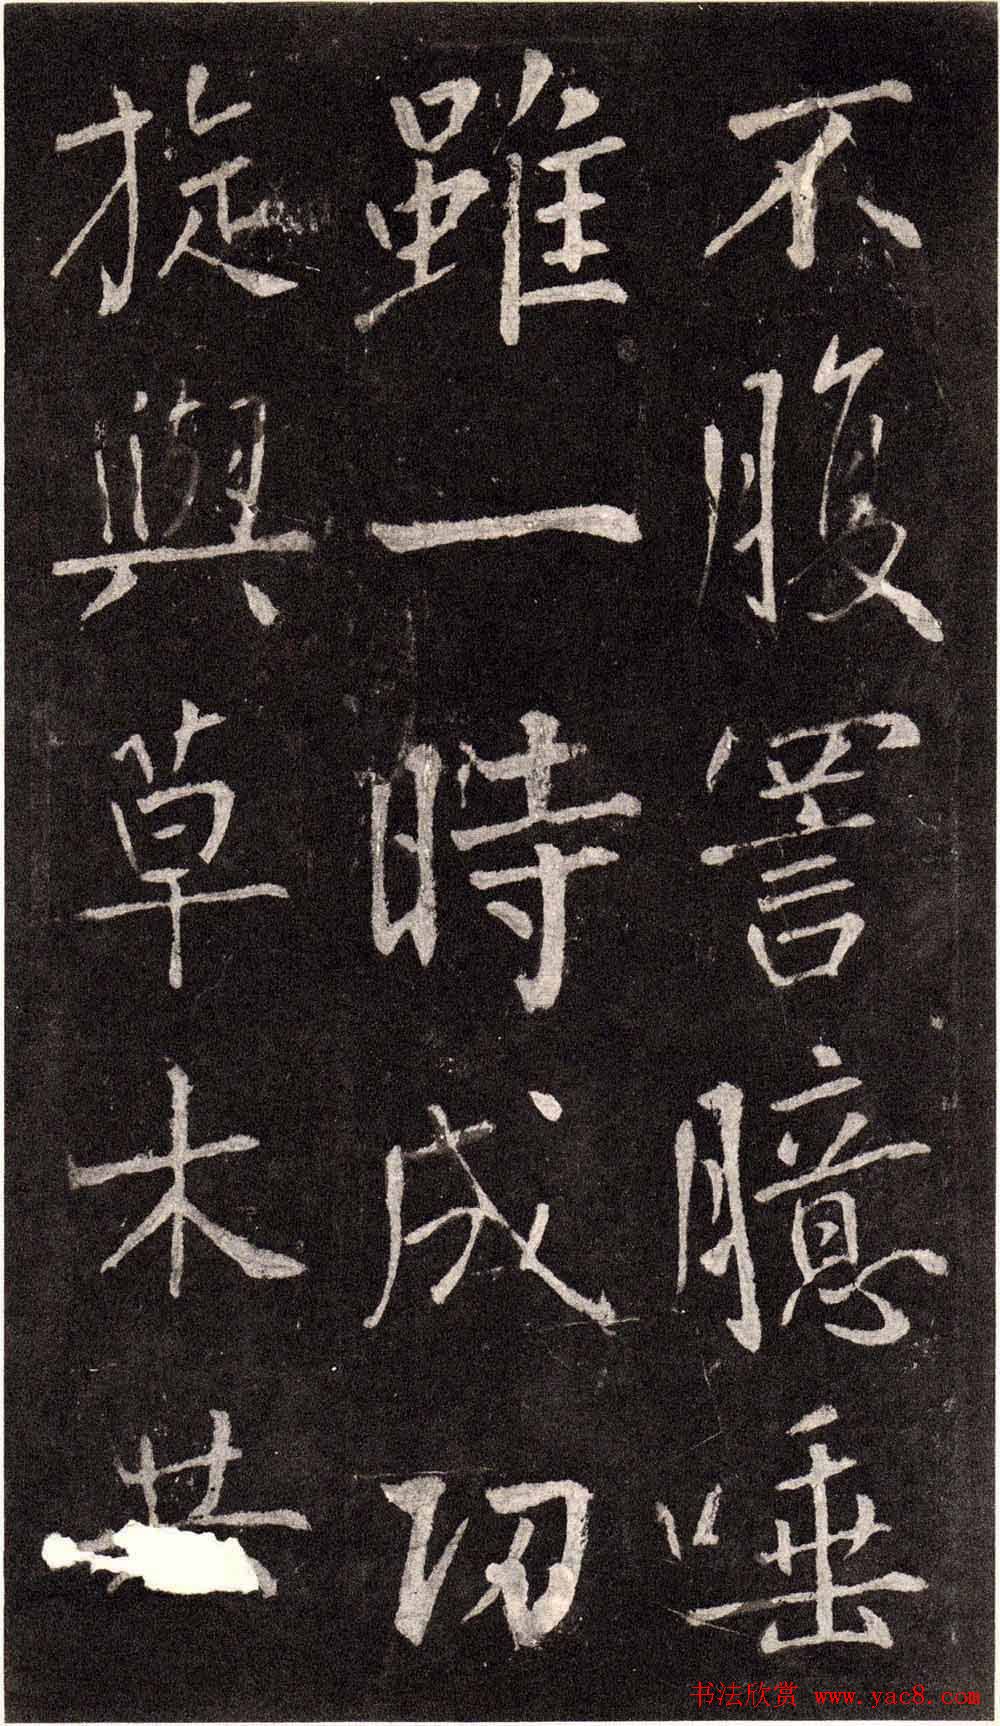 不腹詈臆唾
雖一時成功
旋與草木共
书法欣赏 www.yac8.com